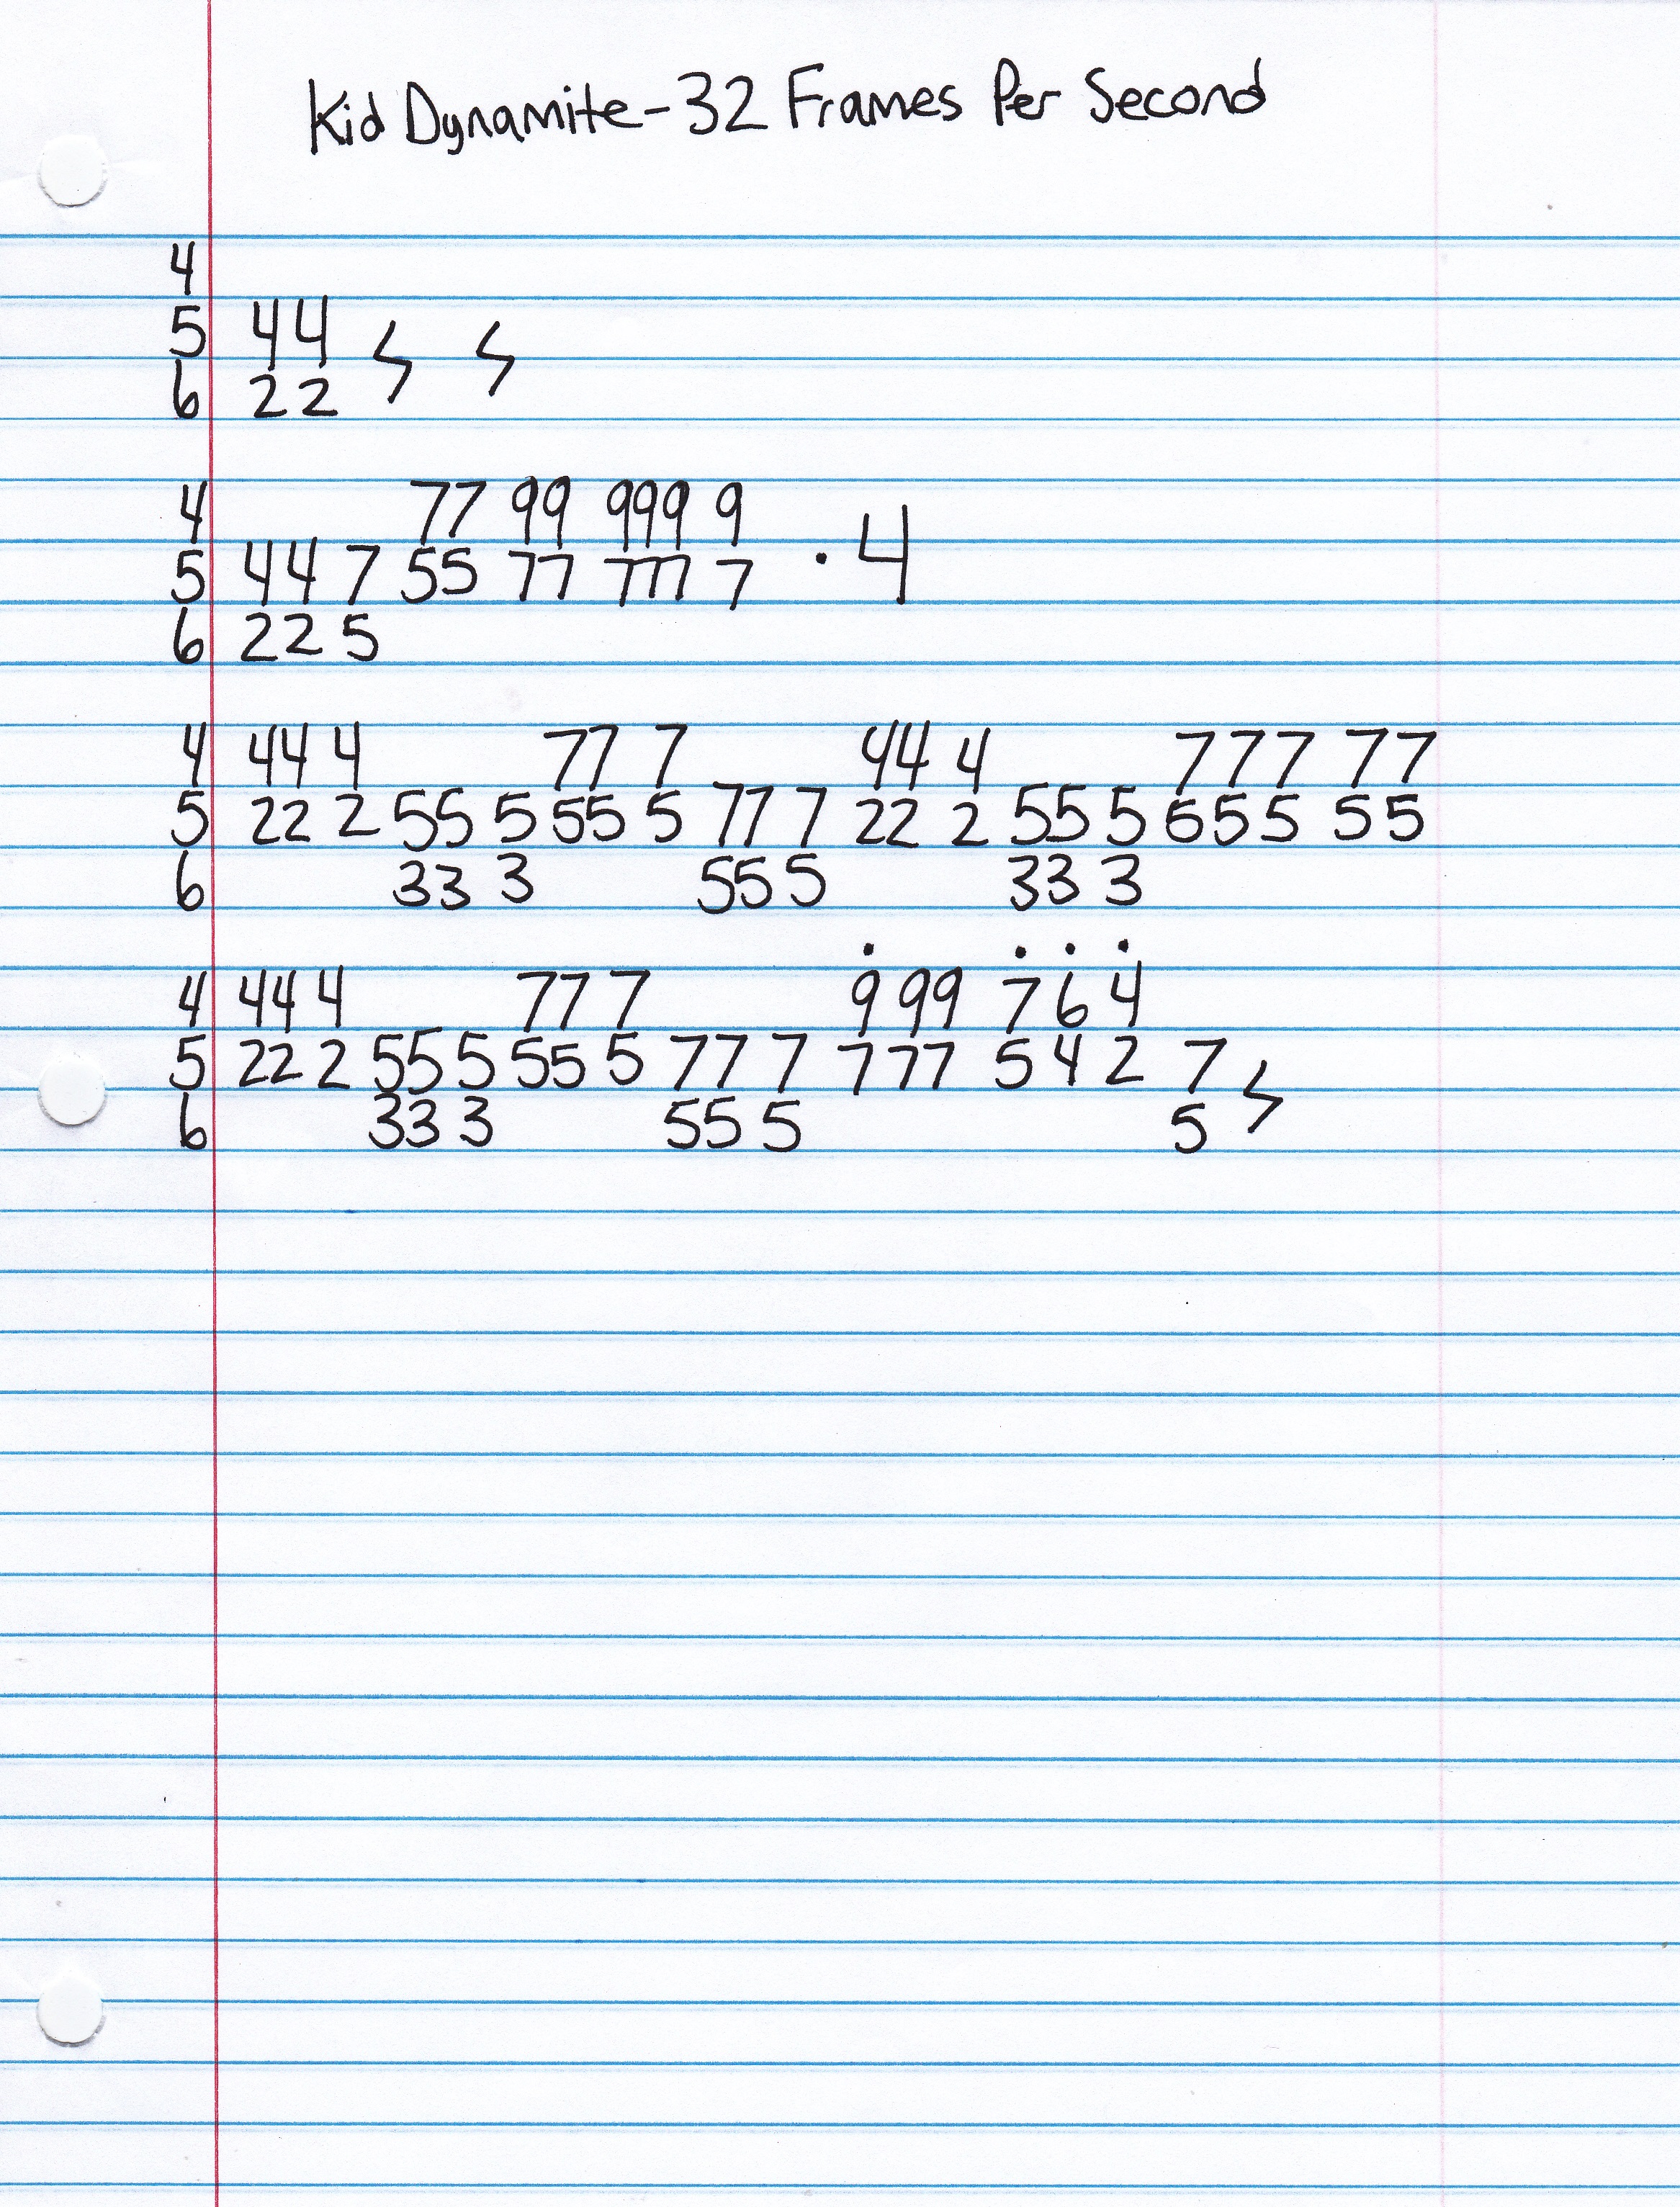 Kid Dynamite - 32 Frames Per Second
4
5 44 ϟ ϟ
6 22
4 77 99 999 9
5 447 55 77 777 7 · 4
6 225
4 44 4 77 7 44 4 777 77
5 22 2 55 5 55 5 77 7 22 2 55 5 555 55
6 33 3 55 5 33 3
. . . .
4 44 4 77 7 9 99 7 6 4
5 22 2 55 5 55 5 77 7 7 77 5 4 2 7 ϟ
6 33 3 55 5 5